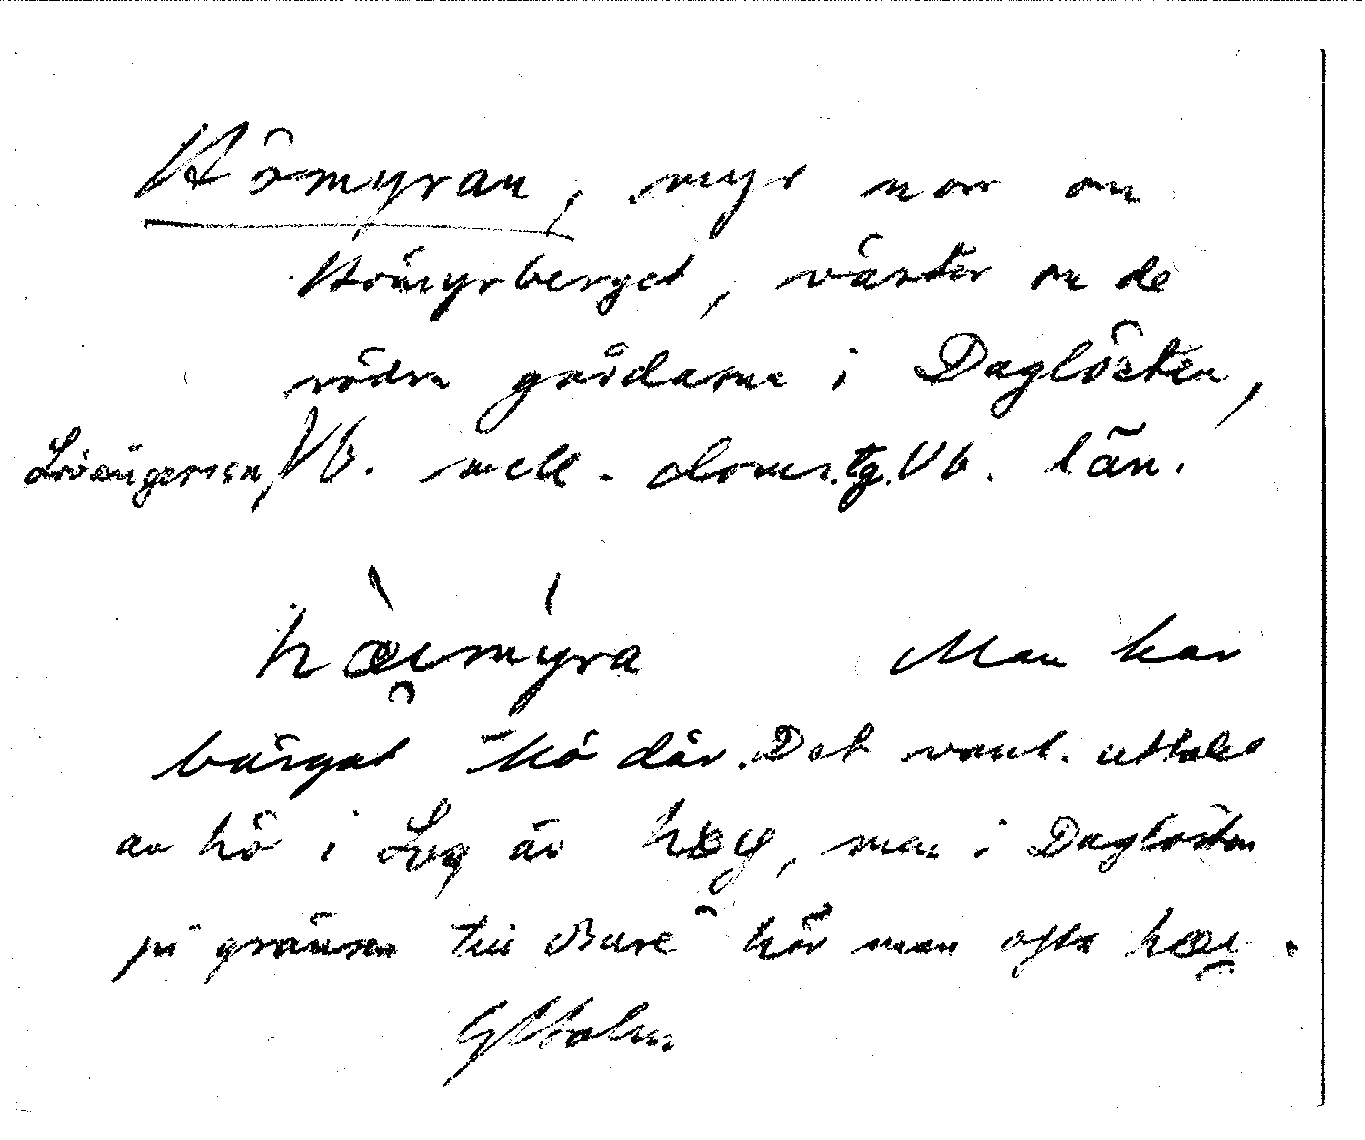 Hömyran, myr norr om
Hömyrberget, väster om de
södra gårdarna i Daglösten,
Lövångersn, Vb. mell. doms.tg. Vb. län.
hæ̀i̯mýra Man har
bärgat hö där. Det vanl. uttalet
av hö i Lvg är høy̯, men i Daglösten
på gränsen till Bureå hör man ofta hæi̯.